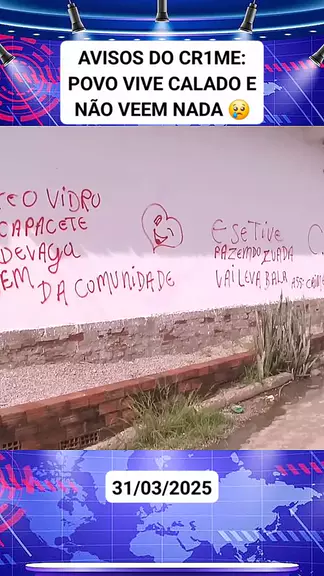 AVISOS DO CR1ME:
POVO VIVE CALADO E
NÃO VEEM NADA 😢
O VIDRO
CAPACETE
DEVAGA
EM DA COMUNIDADE
E SE TIVE
FAZENDO ZUADA
VAI LEVA BALA ASS: CRIME
31/03/2025